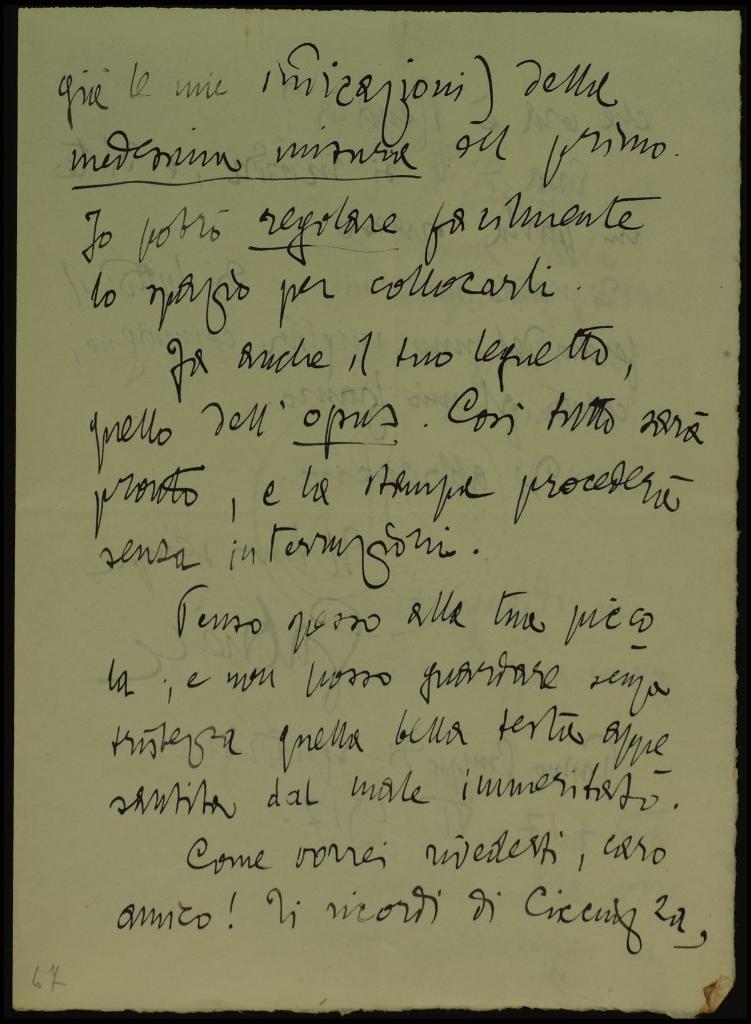 già le mie indicazioni) della
medesima misura del primo.
Io potrò regolare facilmente
lo spazio per collocarli.
Fa anche il suo legnetto,
quello dell'opus. Così tutto sarà
pronto, e la stampa procederà
senza interruzioni.
Penso spesso alla tua picco
la, e non posso guardare senza
tristezza quella bella testa appe
santita dal male immeritato.
Come vorrei rivederti, caro
amico! Ti ricordi di Ciccuzza,
67